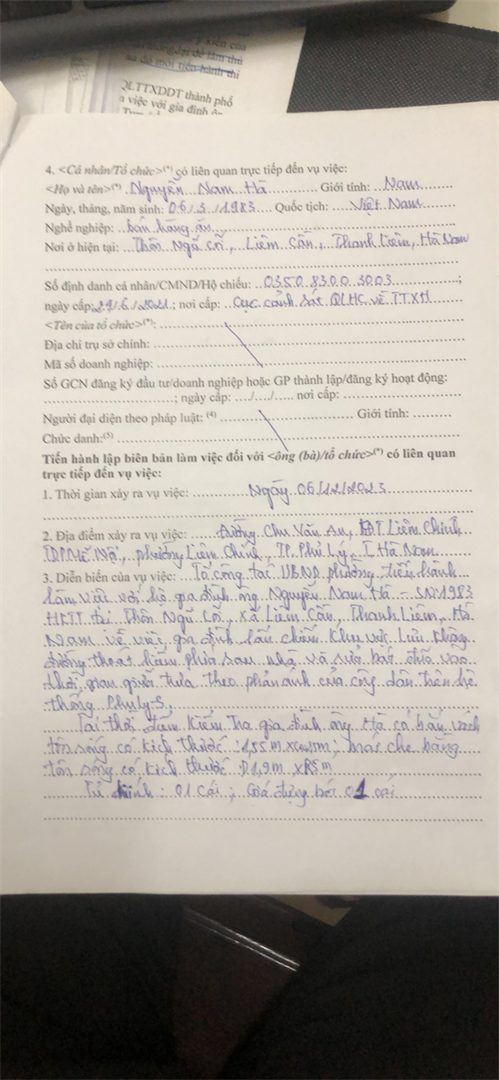 QLTTXDDT thành phố
a việc với gia đình ôn
4. <Cá nhân/Tổ chức>(*) có liên quan trực tiếp đến vụ việc:
<Họ và tên>(*) Nguyễn Nam Hà Giới tính: Nam
Ngày, tháng, năm sinh: 06/3/1983 Quốc tịch: Việt Nam
Nghề nghiệp: bán hàng ăn
Nơi ở hiện tại: Thôn Ngũ Cố, Liêm Cần, Thanh Liêm, Hà Nam
Số định danh cá nhân/CMND/Hộ chiếu: 035083003003;
ngày cấp: 29/6/2021; nơi cấp: Cục cảnh sát QLHC về TTXH
<Tên của tổ chức>(*):
Địa chỉ trụ sở chính:
Mã số doanh nghiệp:
Số GCN đăng ký đầu tư/doanh nghiệp hoặc GP thành lập/đăng ký hoạt động:
; ngày cấp: .../.../..... nơi cấp:
Người đại diện theo pháp luật: (4) Giới tính:
Chức danh:(5)
Tiến hành lập biên bản làm việc đối với <ông (bà)/tổ chức>(*) có liên quan
trực tiếp đến vụ việc:
1. Thời gian xảy ra vụ việc: Ngày 06/12/2023
2. Địa điểm xảy ra vụ việc: Đường Chu Văn An, KĐT Liêm Chính
TDP Mễ Nội, phường Liêm Chính, TP. Phủ Lý, T Hà Nam
3. Diễn biến của vụ việc: Tổ công tác UBND phường tiến hành
làm việc với hộ gia đình ông Nguyễn Nam Hà - SN 1983
HKTT tại Thôn Ngũ Cố, xã Liêm Cần, Thanh Liêm, Hà
Nam về việc gia đình lấn chiếm khu vực lưu không
đường thoát hiểm phía sau nhà và rửa bát đũa vào
thời gian giữa trưa theo phản ánh của công dân trên hệ
thống Phuly-S,
Tại thời điểm kiểm tra gia đình ông Hà có bắn vách
tôn sóng có kích thước: 1,55 m x m; mái che bằng
tôn sóng có kích thước: 1,9m x 85 m
Tủ : 01 cái; Giá đựng bát 01 cái